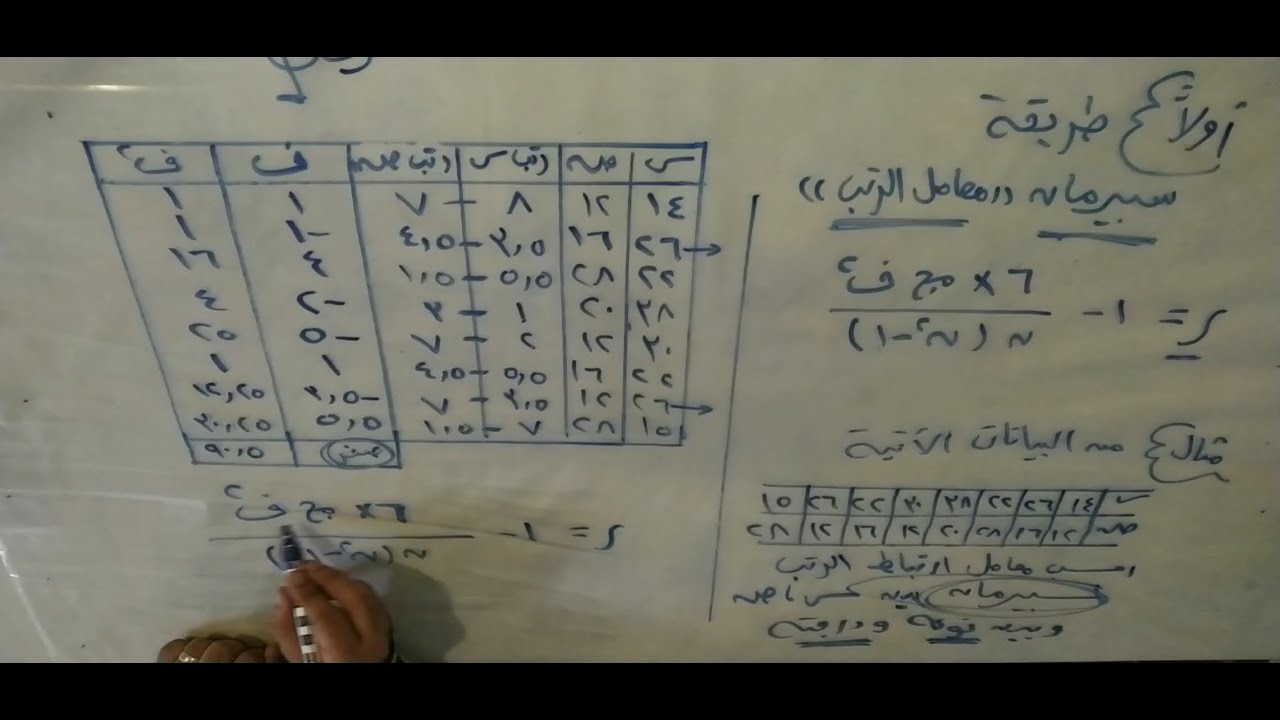 أولاً طريقة
سبيرمان "معامل الرتب"
ر = ١ - ٦ × مج ف² / ن (ن² - ١)
مثال من البيانات الآتية
س ١٤ ٢٦ ٢٢ ٣٨ ٣٠ ٢٢ ٢٦ ١٥
احسب معامل ارتباط الرتب
سبيرمان بين س، ص
وبين نوعه ودرجته
س ص رتب س رتب ص ف ف²
١٤ ١٢ ٨ - ٧ ١ ١
٢٦ ١٦ ٣,٥ - ٤,٥ -١ ١
٢٢ ٥,٥ - ١,٥ ٤ ١٦
٣٨ ٢٠ ١ - ٣ -٢ ٤
٣٠ ١٢ ٢ - ٧ -٥ ٢٥
٢٢ ١٦ ٥,٥ - ٤,٥ ١ ١
٢٦ ١٢ ٣,٥ - ٧ -٣,٥ ١٢,٢٥
١٥ ٧ - ١,٥ ٥,٥ ٣٠,٢٥
صفر ٩٠,٥
ر = ١ - ٦ × مج ف² / ن (ن² - ١)